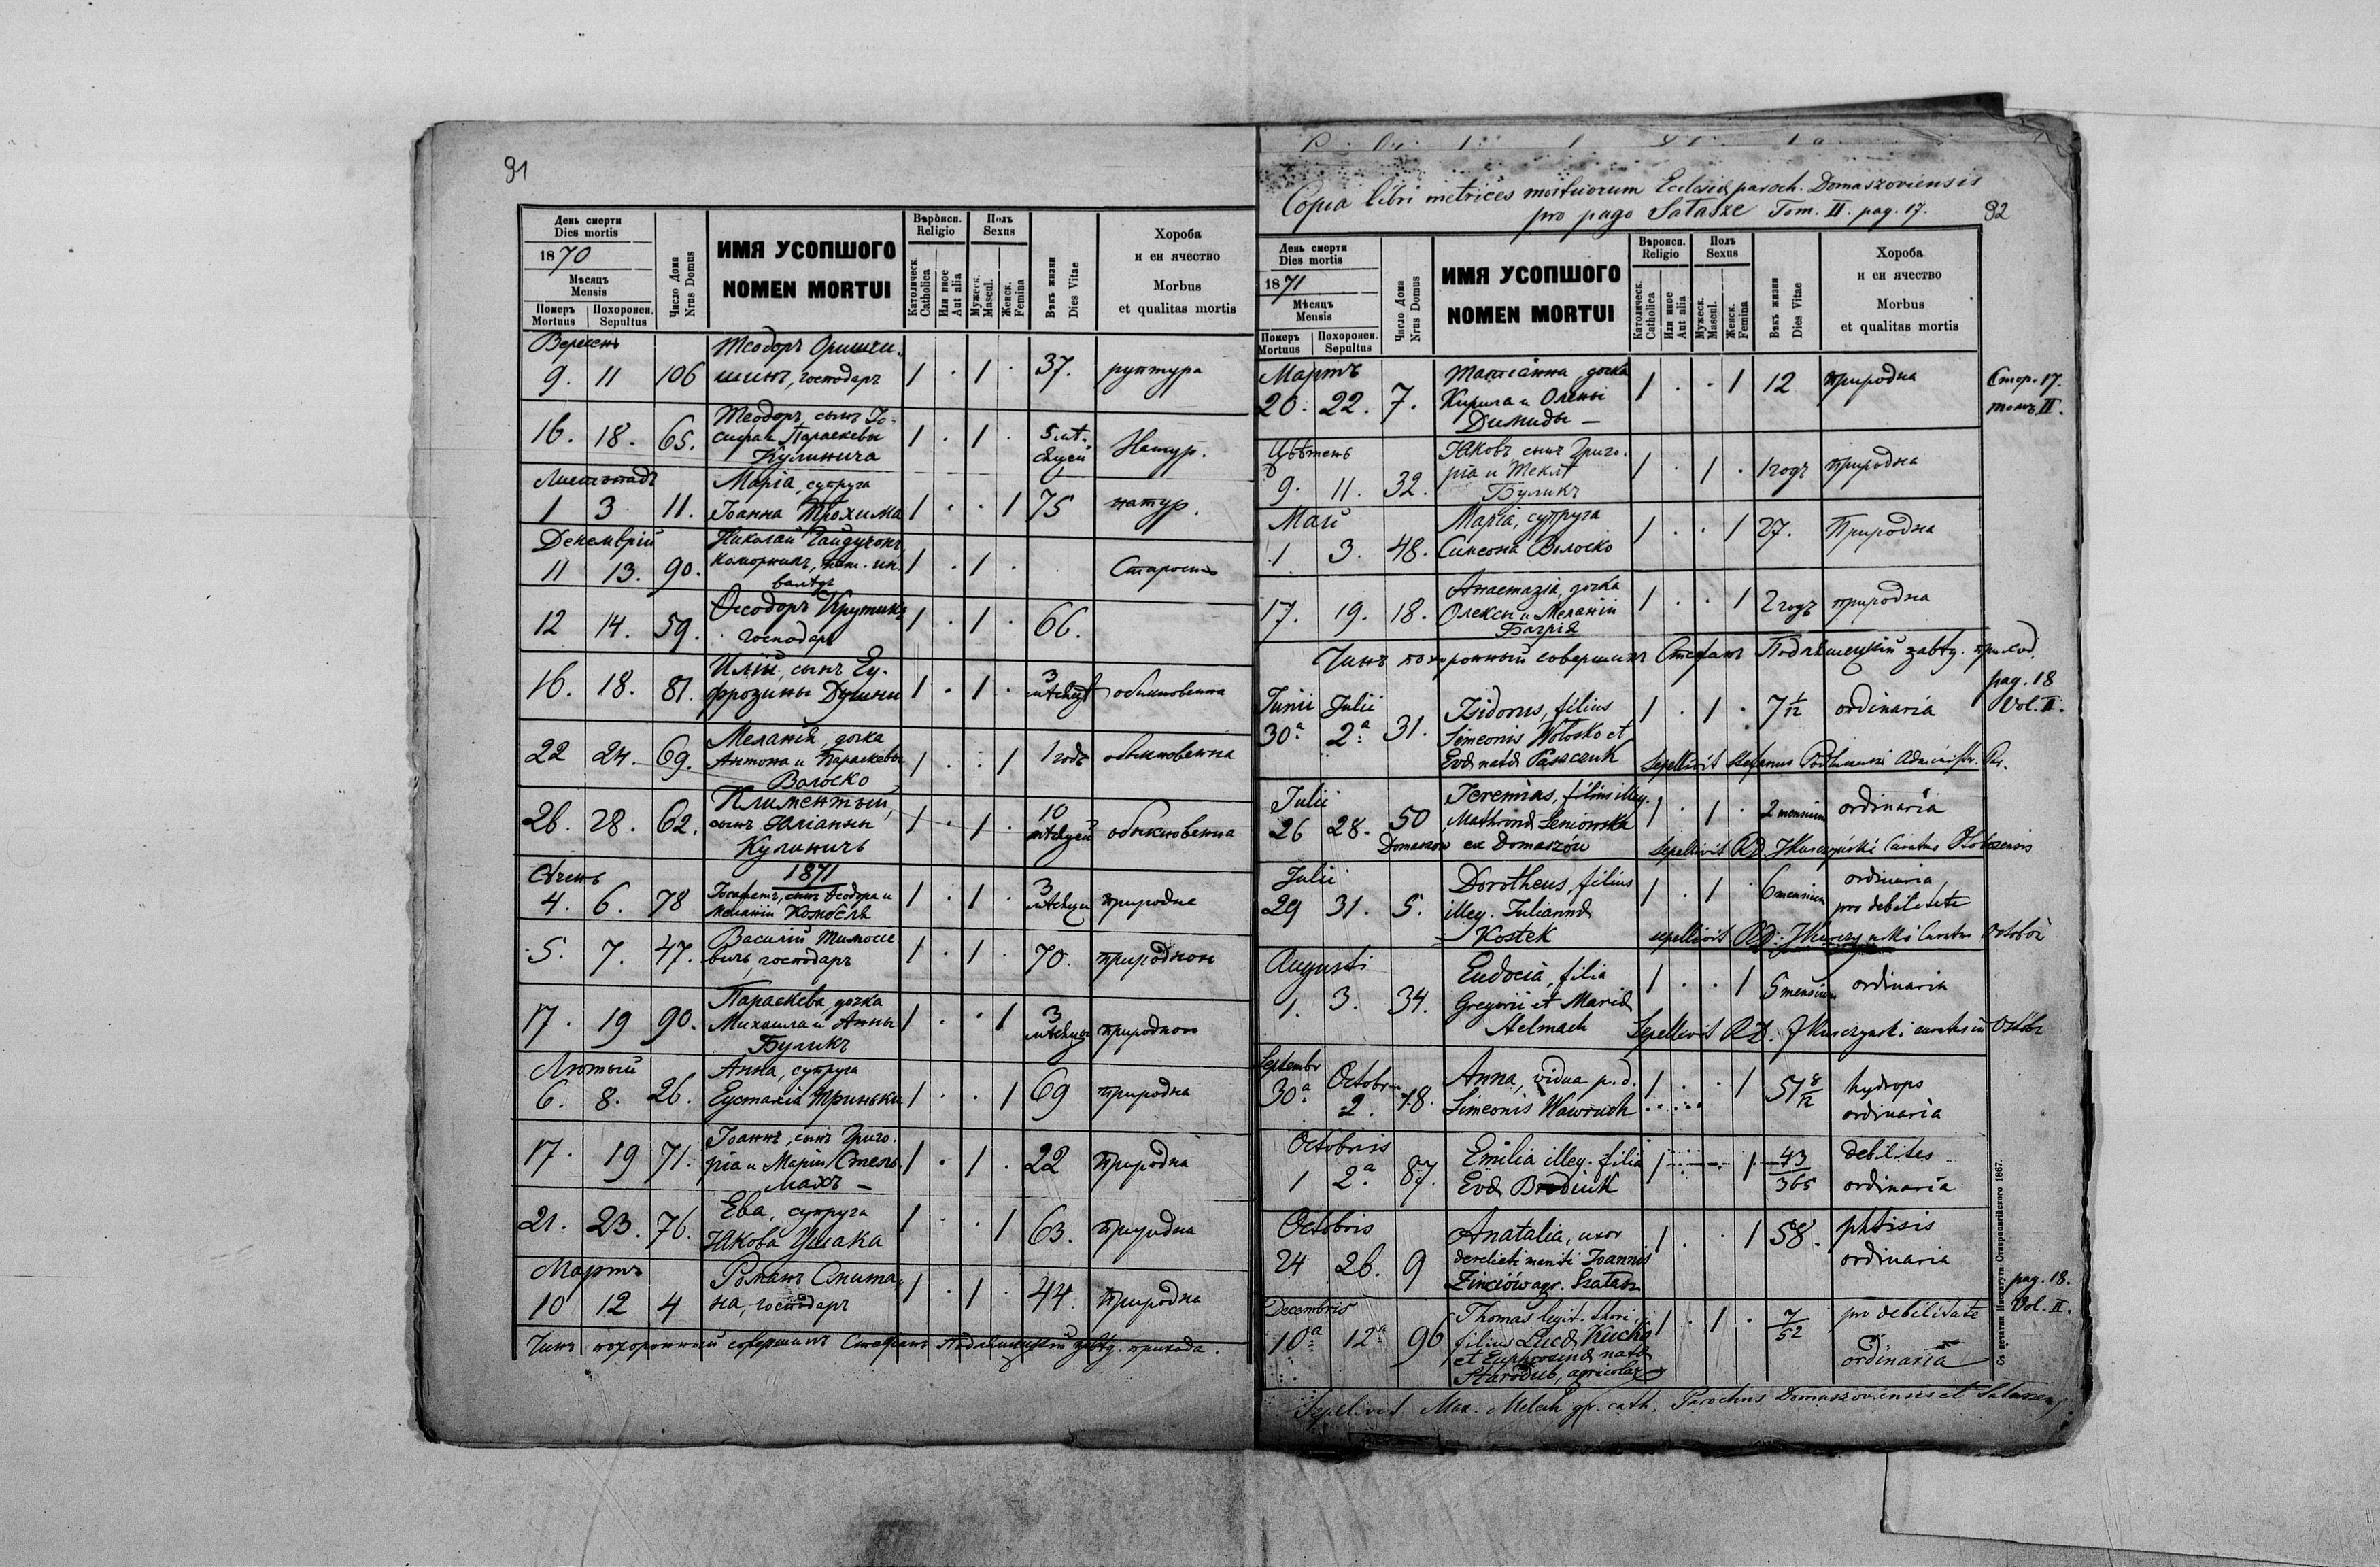 91
День смерти
Dies mortis
1870
Мѣсяцъ
Mensis
Померъ Похоронен.
Mortuus Sepultus
Число Дома
Nrus Domus
ИМЯ УСОПШОГО
NOMEN MORTUI
Вѣроисп.
Religio
Католическ.
Catholica
Или иное
Aut alia
Полъ
Sexus
Мужеск.
Mascul.
Женск.
Femina
Вѣкъ жизни
Dies Vitae
Хороба
и єи ячество
Morbus
et qualitas mortis
Вересень
9. 11 106 Теодоръ
господарь 1 . 1 . 37. руптура
16. 18. 65. Теодоръ, сынъ Іо-
сифа и Параскевы
Кулинича 1 . 1 . 5 мѣ-
сяцей Натур.
Листопадъ
1 3 11. Марія, супруга
Іоанна Трохима 1 . . 1 75 натур.
Декемврій
11 13. 90. Николай Гайдучокъ,
коморникъ, 1 . 1 . Старость
12 14. 59. Ѳеодоръ Крутикъ
господарь 1 . 1 . 66.
16. 18. 81. Илій, сынъ Еу-
фрозины Душни 1 . 1 . 3
мѣсяцѣ обыкновенна
22 24. 69. Меланія, дочка
Антона и Параскевы
Волоско 1 . . 1 1 годъ обыкновенна
26. 28. 62. Климентый,
сынъ Юліанны
Кулиничъ 1 . 1 . 10
мѣсяцей обыкновенна
Сѣчень 1871
4. 6. 78 Іосафатъ, сынъ Ѳеодора и
Меланіи 1 . 1 . 3
мѣсяци природна
5. 7. 47. Василій Тимосе-
вичъ, господарь 1 . 1 . 70. природною
17. 19 90. Параскева, дочка
Михаила и Анны
Буликъ 1 . . 1 3
мѣсяцы природною
Лютый
6. 8. 26. Анна, супруга
Еустахія Триньки 1 . . 1 69 природна
17. 19 71. Іоаннъ, сынъ Григо-
рія и Маріи Стель-
махъ — 1 . 1 . 22 природна
21. 23. 76. Ева, супруга
Якова Ушака 1 . . 1 63. природна
Мартъ
10 12 4 Романъ Смита-
на, господарь 1 . 1 . 44. природна
Чинъ похоронный совершилъ Стефанъ Подляшецкій завѣд. прихода.
Copia libri metrices mortuorum Ecclesiæ paroch. Domaszoviensis
pro pago Satasze Tom. II. pag. 17.
92
День смерти
Dies mortis
1871
Мѣсяцъ
Mensis
Померъ Похоронен.
Mortuus Sepultus
Число Дома
Nrus Domus
ИМЯ УСОПШОГО
NOMEN MORTUI
Вѣроисп.
Religio
Католическ.
Catholica
Или иное
Aut alia
Полъ
Sexus
Мужеск.
Mascul.
Женск.
Femina
Вѣкъ жизни
Dies Vitae
Хороба
и єи ячество
Morbus
et qualitas mortis
Мартъ
20. 22. 7. Маріанна, дочка
Кирила и Олены
Димиды — 1 . . 1 12 природна
Стор. 17.
томъ II.
Цвѣтень
9. 11. 32. Яковъ сынъ Григо-
рія и Теклѣ
Буликъ 1 . 1 . 1 годъ природна
Май
1 3. 48. Марія, супруга
Симеона Волоско 1 . . 1 27. Природна
17. 19. 18. Анастазія, дочка
Олексы и Меланіи
Багрій 1 . . 1 2 годъ природна
Чинъ похоронный совершилъ Стефанъ Подляшецкій завѣд. приход.
pag. 18
Vol. II.
Junii Julii
30ª 2ª 31. Izidorus, filius
Simeonis Wołosko et
Evæ natæ Paszczuk 1 . 1 . 7 1/12 ordinaria
Sepellivit Stefanus
Julii
26 28. 50 Jeremias, filius illeg.
Mathronæ Seniowska
Domaszow ex Domaszów 1 . 1 . 2 mensium ordinaria
Sepellivit RD. JKurczyński Curatus
Julii
29 31. 5. Dorotheus, filius
illeg. Juliannæ
Kostek 1 . 1 . 6 mensium ordinaria
pro debilitate
sepellivit RD: Curatus
Augusti
1. 3. 34. Eudocia, filia
Gregorii et Mariæ
Stelmach 1 . . 1 5 mensium ordinaria
Sepellivit RD. JKurczynski curatus in
Septembr Octobr
30ª 2. 78. Anna, vidua p. d.
Simeonis Wawruch 1 . . 1 51 8/12 hydrops
ordinaria
Octobris
1 2ª 87. Emilia illeg. filia
Evæ 1 1 43/365 debilitas
ordinaria
Octobris
24 26. 9 Anatalia, uxor
derelicti mariti Joannis
1 . . 1 58. phtisis
ordinaria
Decembris
10ª 12ª 96 Thomas legit. thori,
filius Lucæ Kucha
et Euphrosinæ natæ
Starodub, agricolar 1 . 1 . 7/52 pro debilitate
ordinaria
pag. 18.
Vol. II.
Sepelivit Max. Melech gr. cath. Parochus Domaszoviensis et Sataszens
Съ печатни Института Ставропигійского 1867.